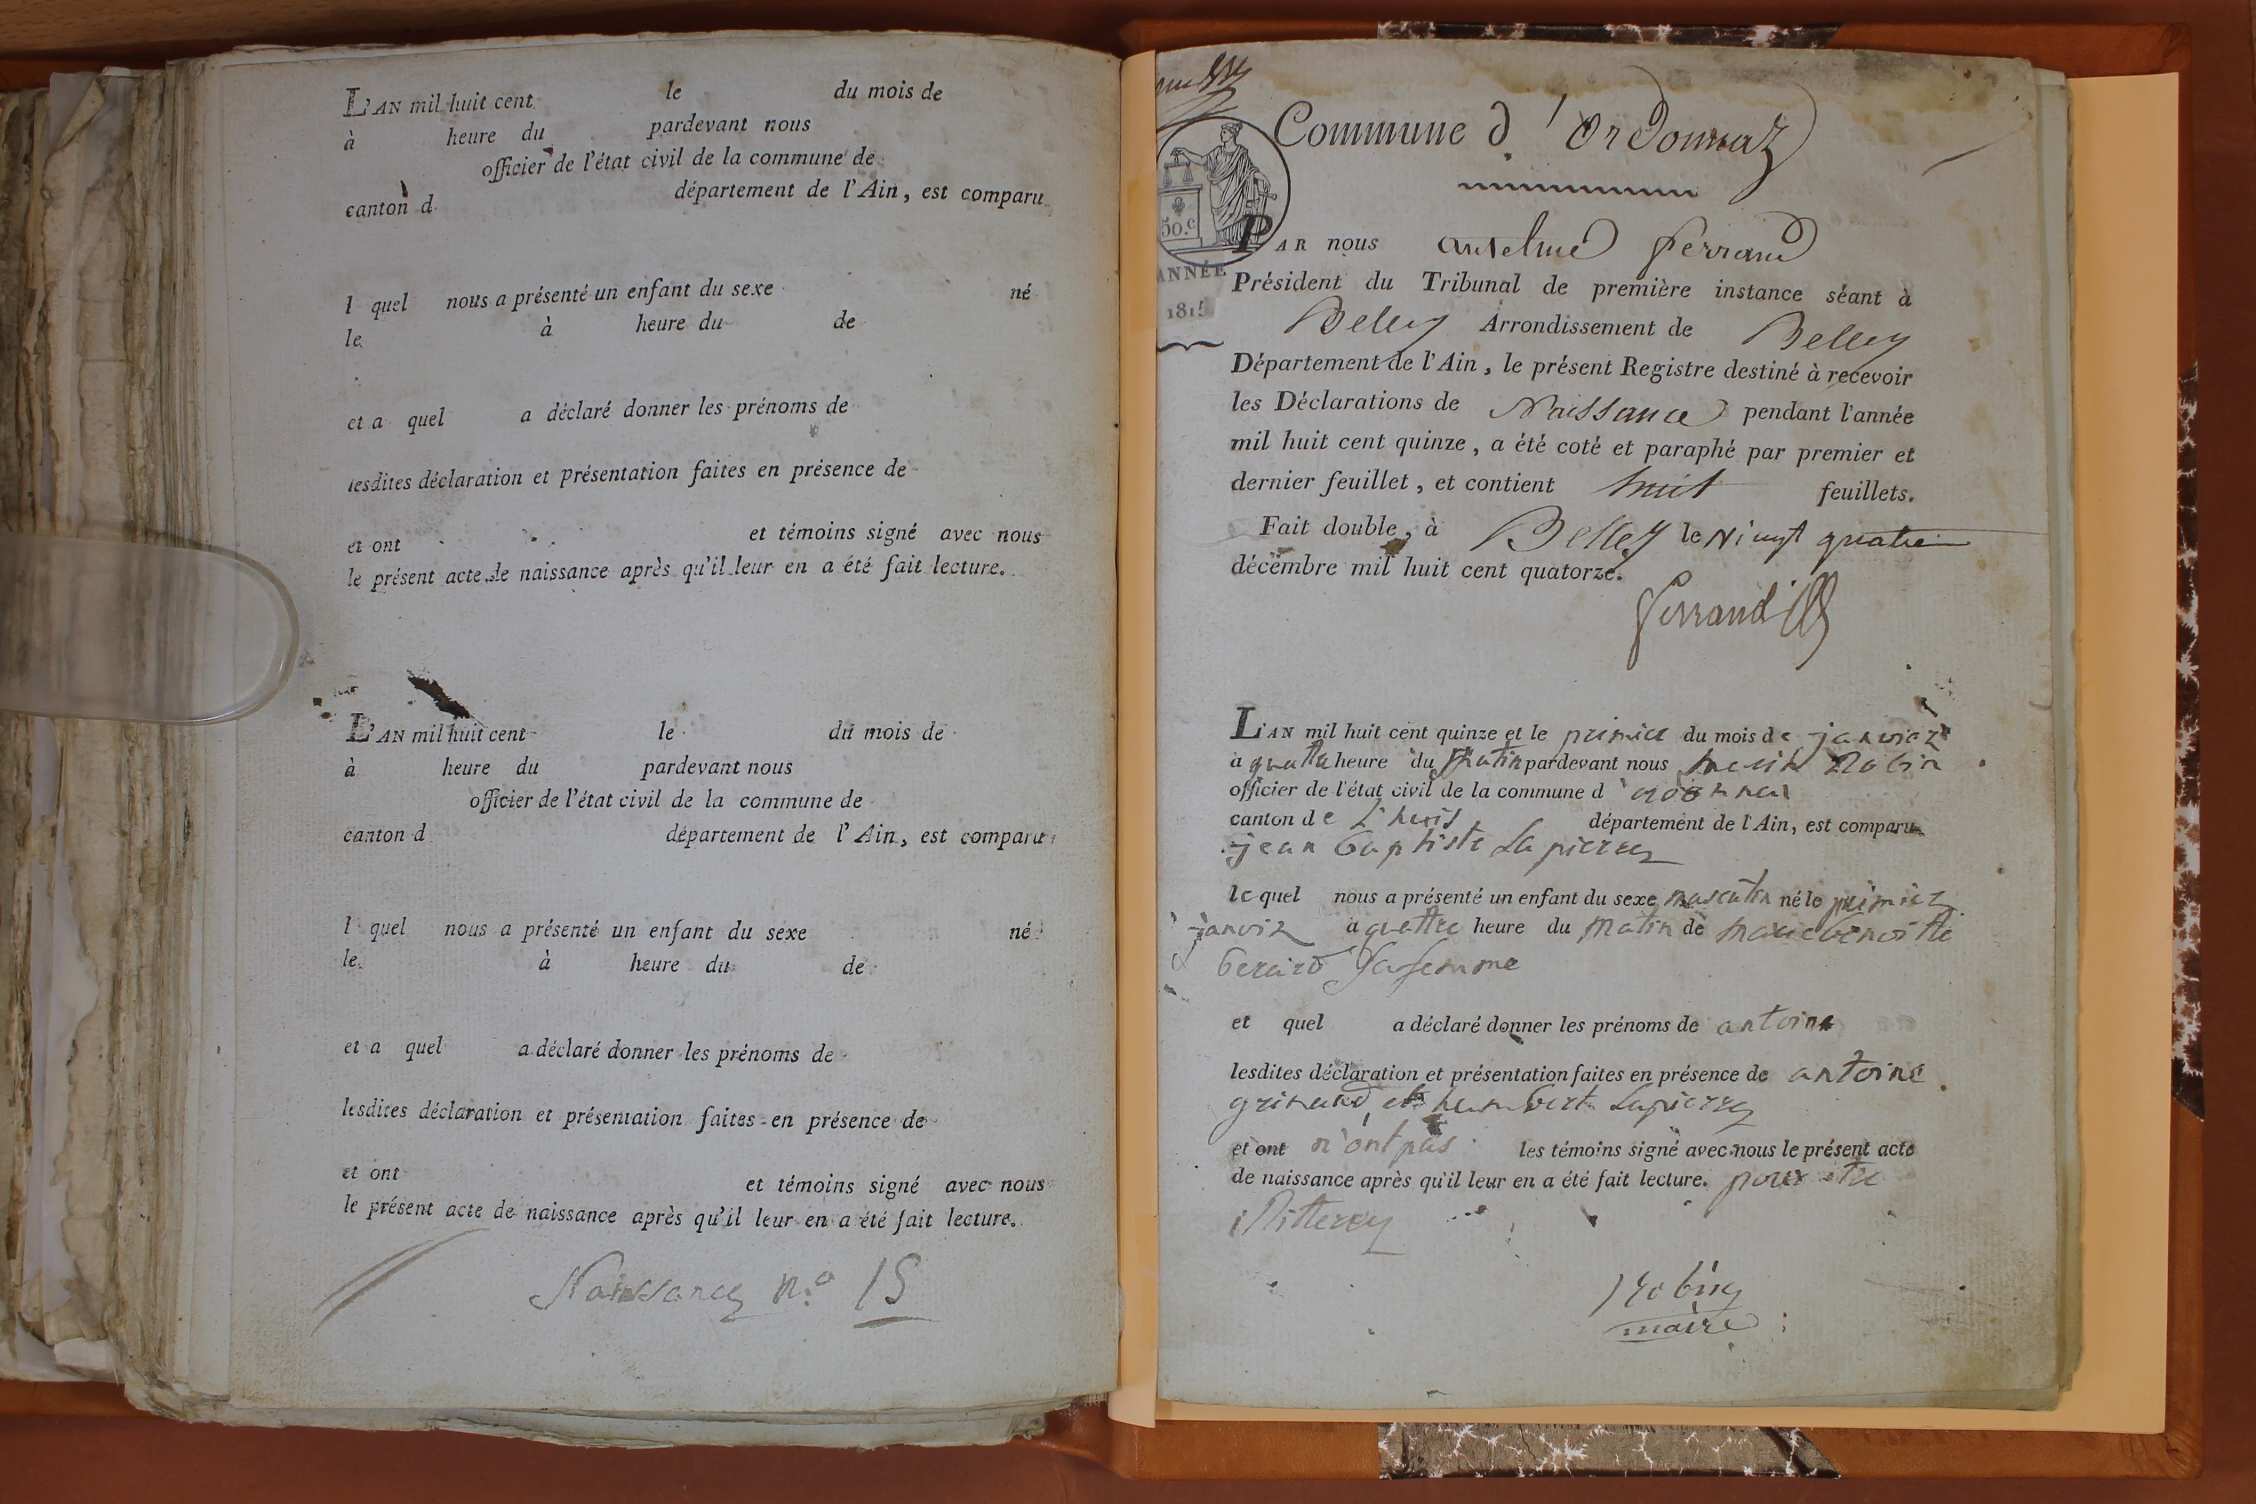 L'AN mil huit cent le du mois de
à heure du pardevant nous
officier de l'état civil de la commune de
canton d département de l'Ain, est comparu
l quel nous a présenté un enfant du sexe né
le à heure du de
et a quel a déclaré donner les prénoms de
lesdites déclaration et présentation faites en présence de
et ont et témoins signé avec nous
le présent acte de naissance après qu'il leur en a été fait lecture.
L'AN mil huit cent le du mois de
à heure du pardevant nous
officier de l'état civil de la commune de
canton d département de l'Ain, est comparu
l quel nous a présenté un enfant du sexe né
le à heure du de
et a quel a déclaré donner les prénoms de
lesdites déclaration et présentation faites en présence de
et ont et témoins signé avec nous
le présent acte de naissance après qu'il leur en a été fait lecture.
Naissances n.o 15
Commune d'Ordonnaz
50.c
ANNÉE
1815
PAR nous anselme ferrand
Président du Tribunal de première instance séant à
Belley Arrondissement de Belley
Département de l'Ain, le présent Registre destiné à recevoir
les Déclarations de Naissance pendant l'année
mil huit cent quinze, a été coté et paraphé par premier et
dernier feuillet, et contient huit feuillets.
Fait double, à Belley le vingt quatre
décembre mil huit cent quatorze.
ferrand
L'AN mil huit cent quinze et le premier du mois de janvier
à quattre heure du Matin pardevant nous Robin
officier de l'état civil de la commune d'ordonnaz
canton de L'huis département de l'Ain, est comparu
jean baptiste Lapierre
le quel nous a présenté un enfant du sexe masculin né le premier
janvier à quattre heure du Matin de marie benoitte
berard Sa femme
et quel a déclaré donner les prénoms de antoine
lesdites déclaration et présentation faites en présence de antoine
grimaud et humbert Lapierre
et ont n'ont pas les témoins signé avec nous le présent acte
de naissance après qu'il leur en a été fait lecture. pour etre
Robin
maire